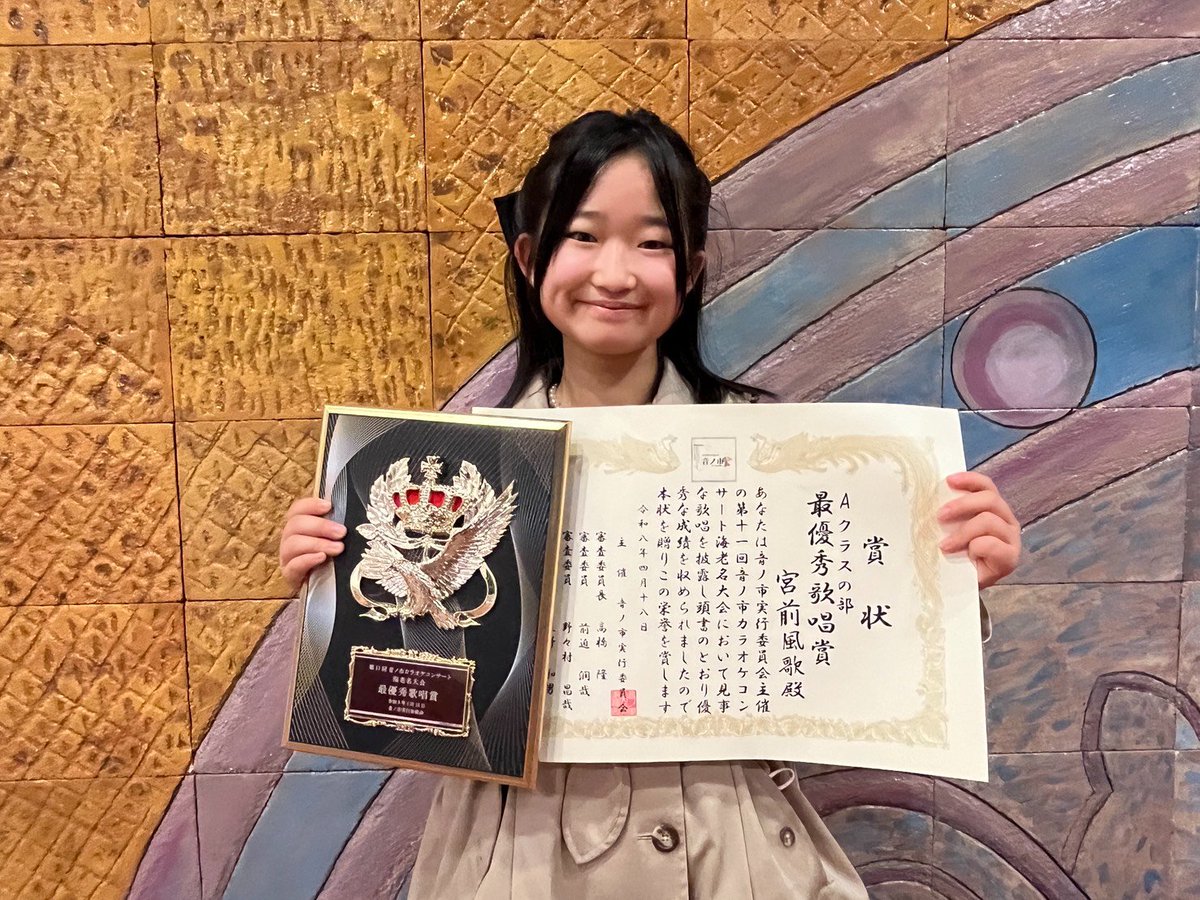 音ノ市
賞状
Aクラスの部
最優秀歌唱賞
宮前風歌殿
あなたは音ノ市実行委員会主催
の第十一回音ノ市カラオケコン
サート海老名大会において見事
な歌唱を披露し頭書のとおり優
秀な成績を収められましたので
本状を贈りこの栄誉を賞します
令和八年四月十八日
主催 音ノ市実行委員会
審査委員長 高橋 隆
審査委員 前迫 潤哉
審査委員 野々村 昌哉
第11回音ノ市カラオケコンサート
海老名大会
最優秀歌唱賞
令和8年4月18日
音ノ市実行委員会